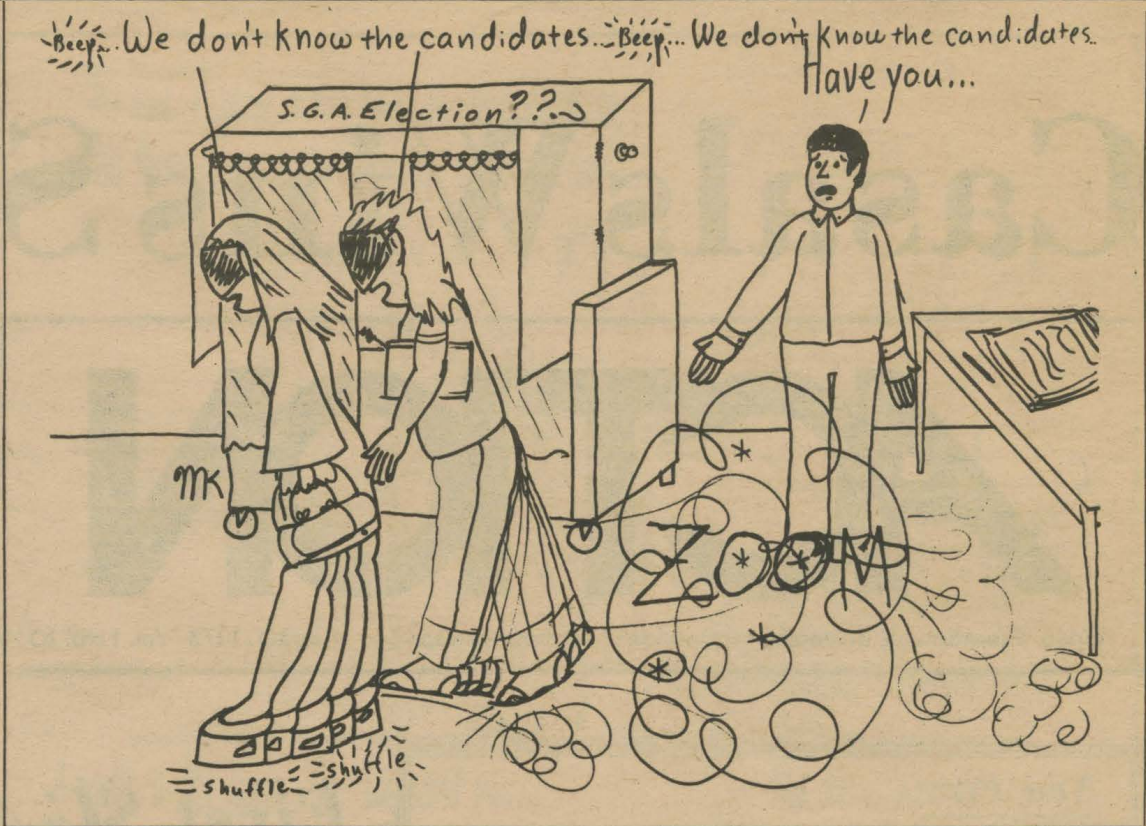 Beep... We don't know the candidates... Beep... We don't know the candidates..
Have you...
S.G.A. Election???
MK
ZOOM
shuffle shuffle